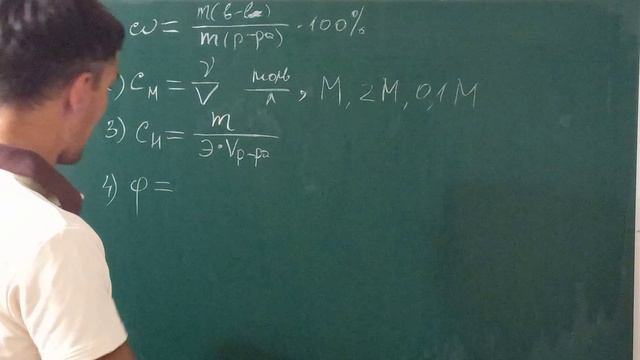 ω = m(в-ва) / m(р-ра) · 100%
) C_M = ν / V моль / л , M, 2M, 0,1M
3) C_H = m / Э · V_р-ра
4) φ =